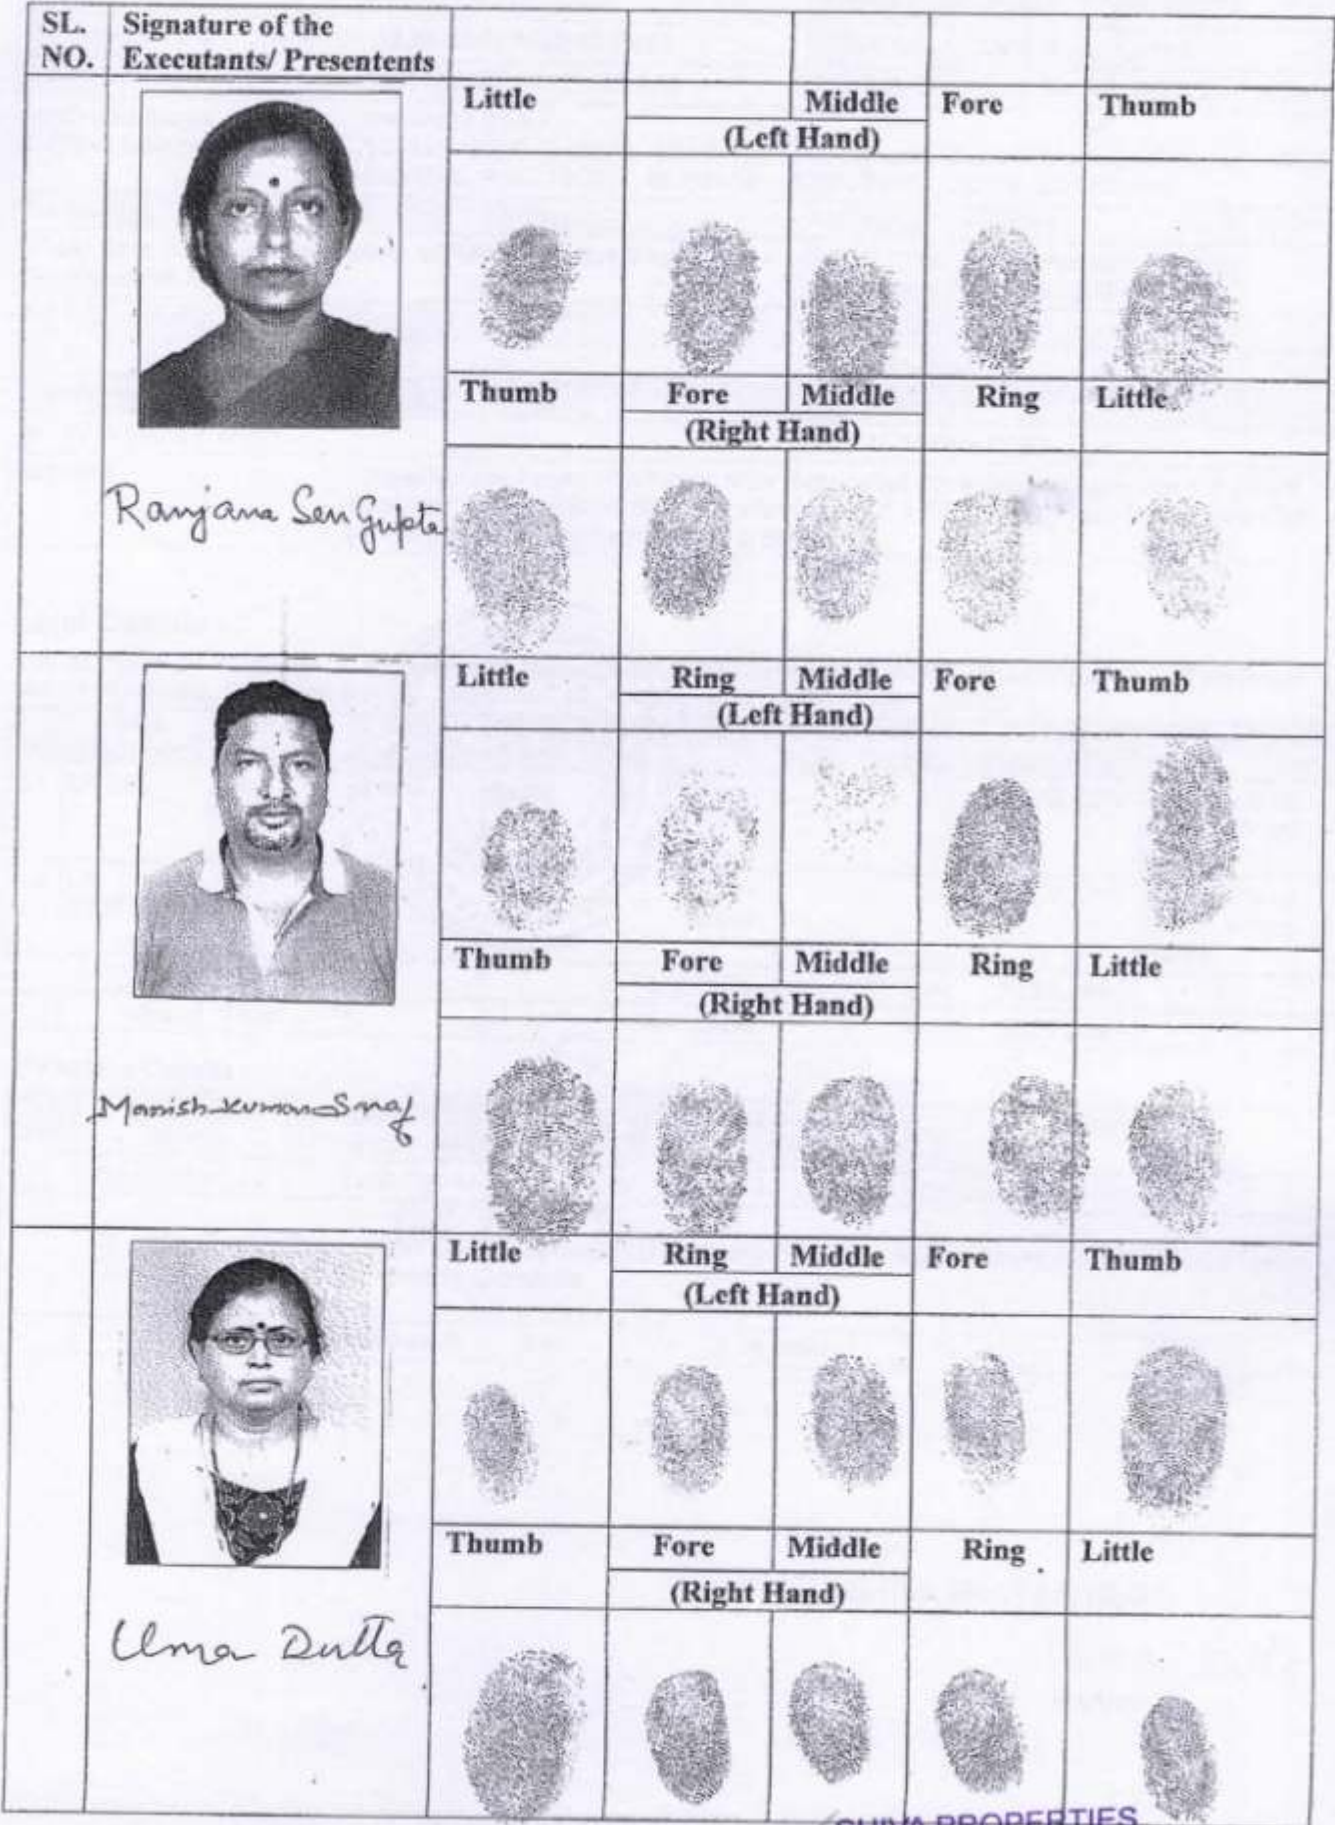 SL. Signature of the
NO. Executants/ Presentents
Little Middle Fore Thumb
(Left Hand)
Thumb Fore Middle Ring Little
(Right Hand)
Ranjana Sen Gupta
Little Ring Middle Fore Thumb
(Left Hand)
Thumb Fore Middle Ring Little
(Right Hand)
Manish Kumar
Little Ring Middle Fore Thumb
(Left Hand)
Thumb Fore Middle Ring Little
(Right Hand)
Uma Dutta
SHIVA PROPERTIES